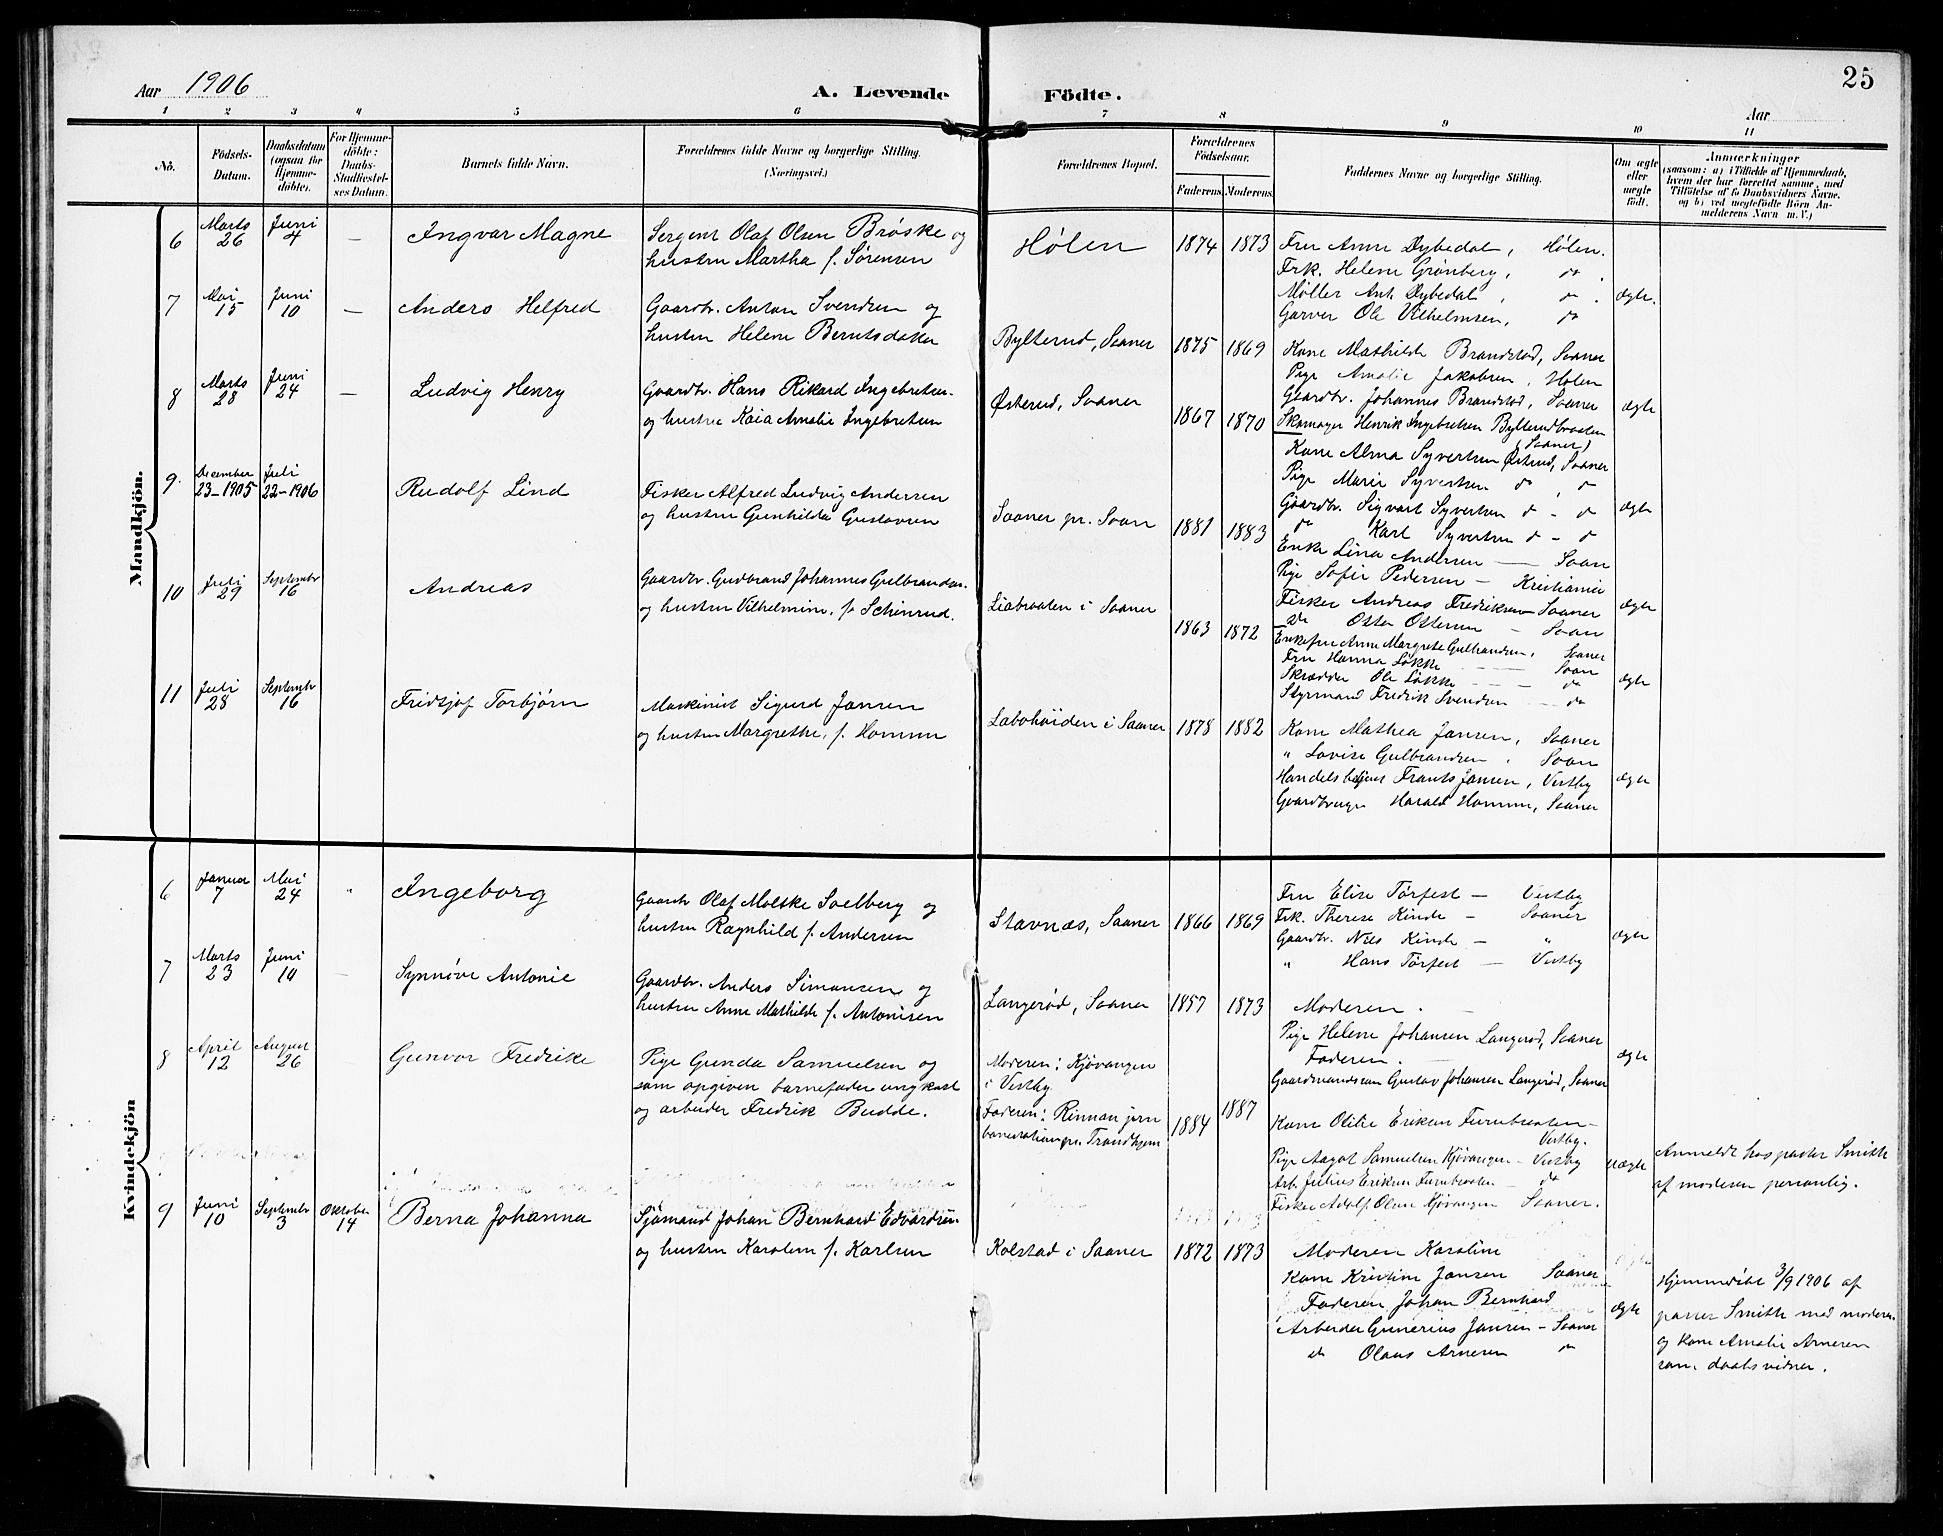 Aar 1906
A. Levende Födte.
25
Aar
1 2 3 4 5 6 7 8 9 10 11
No.
Födsels-Datum.
Daabsdatum (ogsaa for Hjemmedöbte).
For Hjemmedöbte: Daabs-Stadfæstelses Datum.
Barnets fulde Navn.
Forældrenes fulde Navne og borgerlige Stilling. (Næringsvei.)
Forældrenes Bopæl.
Forældrenes Födselsaar.
Faderens. Moderens.
Faddernes Navne og borgerlige Stilling.
Om ægte eller uægte födt.
Anmærkninger
(saasom: a) i Tilfælde af Hjemmedaab,
hvem der har forrettet samme, med
Tilföielse af to Daabsvidners Navne,
og b) ved uegtefödte Börn An-
melderens Navn m. V.)
Mandkjön.
6 Marts 26 Juni 4 — Ingvar Magne
Sergent Olaf Olsen Brøske og
hustru Martha f. Sørensen
Hølen 1874 1873
Fru Anne Dybedal, Hølen.
Frk. Helene Grønberg, do.
Møller Ant. Dybedal, do.
Garver Ole Vilhelmsen, do
ægte.
7 Mai 15 Juni 10 — Anders Helfred
Gaardbr. Anton Svendsen og
hustru Helene Berntsdatter
Bylterud, Saaner 1875 1869
Kone Mathilde Brandstad, Saaner
Pige Amalie Jakobsen, Hølen
Gaardbr. Johannes Brandstad, Saaner
Skomager Henrik Ingebretsen Bylterudbraaten
(Saaner)
ægte
8 Marts 28 Juni 24 — Ludvig Henry
Gaardbr. Hans Rikard Ingebretsen
og hustru Kaia Amalie Ingebretsen
Østerud, Saaner 1867 1870
Kone Alma Syvertsen Østerud, Saaner
Pige Marie Syvertsen do, do
Gaardbr. Sigvart Syvertsen do - do
do Karl Syvertsen do - do
ægte
9 December 23-1905 Juli 22-1906 Rudolf Lind
Fisker Alfred Ludvig Andersen
og hustru Gunhilda Gustavsen
Saaner pr. Saan 1881 1883
Enke Lina Andersen — Saan
Pige Sofie Pedersen — Kristiania
Fisker Andreas Fredriksen Saaner
do Otto Ottersen - Saan
ægte
10 Juli 29 Septembr 16 Andreas
Gaardbr. Gudbrand Johannes Gulbrandsen
og hustru Vilhelmine, f. Schinrud.
Liabraaten i Saaner 1863 1872
Enkefru Anne Margrete Gulbrandsen, Saaner
Fru Hanna Løkke — Saan
Skrædder Ole Løkke — do
Styrmand Fredrik Svendsen — do
ægte
11 Juli 28 Septembr 16 Fridtjof Torbjørn
Maskinist Sigurd Jansen
og hustru Margrethe, f. Hommen
Labohøiden i Saaner 1878 1882
Kone Mathea Jansen, Saaner
" Lovise Gulbrandsen, Saan
Handelsbetjent Frants Jansen, Vestby
Gaardbruger Harald Hommen, Saaner
ægte
Kvindekjön
6 Januar 7 Mai 24 " Ingeborg
Gaardbr Olaf Moltke Solberg og
hustru Ragnhild f. Andersen
Stavnæs, Saaner 1866 1869
Fru Elise Tørfest — Vestby
Frk. Therese Kinde - Saaner
Gaardbr. Nils Kinde — "
" Hans Tørfest — Vestby
ægte
7 Marts 23 Juni 10 — Synnøve Antonie
Gaardbr. Anders Simonsen og
hustru Anne Mathilde f. Antonisen
Langerød, Saaner 1857 1873
Moderen.
Pige Helene Johansen Langerød, Saaner
Faderen.
Gaardmandssøn Gustav Johansen Langerød, Saaner
ægte
8 April 12 August 26 Gunvor Fredrike
Pige Gunda Samuelsen og
som opgiven barnefader ungkarl
og arbeider Fredrik Budde.
Moderen: Kjøvangen
i Vestby
Faderen: Rinnan jern
banestation pr. Trondhjem
1884 1887
Kone Olilie Eriksen Furubraaten -
Vestby.
Pige Aagot Samuelsen Kjøvangen - Vestby
Arb. Julius Eriksen Furubraaten — do
Fisker Adolf Olsen Kjøvangen Saaner.
uægte
Anmeldt hos pastor Smith
af moderen personlig.
9 Juni 10 Septembr 3 Oktober 14 Berna Johanna
Sjømand Johan Bernhard Edvardsen
og hustru Karoline f. Karlsen
Kolstad i Saaner 1872 1873
Moderen Karoline
Kone Kristine Jansen Saaner
Faderen Johan Bernhard
Arbeider Gunerius Jansen - Saaner
do Olaus Arnesen do
ægte
Hjemmedøbt 3/9 1906 af
pastor Smith med moderen
og kone Amalie Arnesen
som daabsvidner.